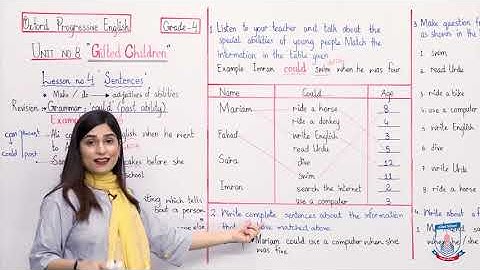 Oxford Progressive English
Grade-4
Unit no 8 "Gifted Children"
Lesson no 4 "Sentences"
Make / do → adjectives of abilities
Revision → Grammar: 'could' (past ability)
can present
could past
English when he went
to
cakes before she
school
which tells
about a person
1. Listen to your teacher and talk about the
special abilities of young people. Match the
information in the table given
Example: Imran could swim when he was four
Name Could Age
Mariam ride a horse 8
ride a donkey 4
Fahad write English 3
read Urdu 5
Sara dive 12
swim 11
Imran search the Internet 2
use a computer 3
2. Write complete sentences about the information
matched above.
Mariam could use a computer when she
was five.
3. Make question
as shown in the
1. swim
2. read Urdu
3. ride a bike
4. use a computer
5. write English
6. dive
7. write Urdu
8. ride a horse
4. Write about